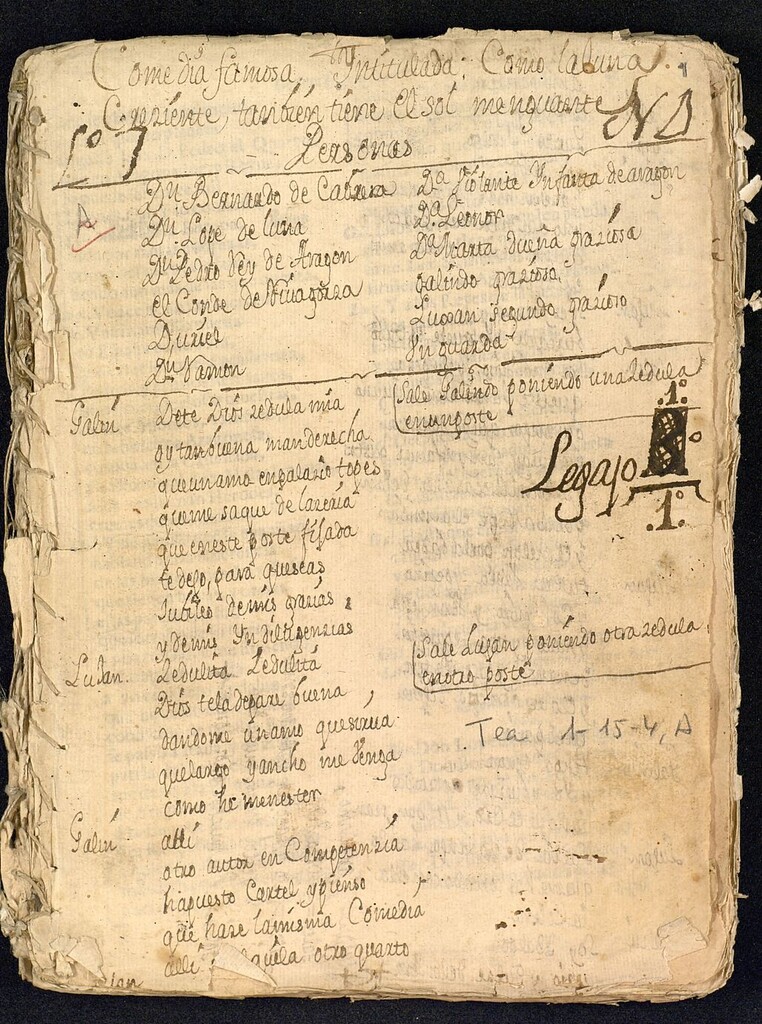 Comedia famosa. Yntitulada: Como la luna
Creziente, también tiene el sol menguante
Lº 7
ND
Personas
A
Dn. Bernardo de Cabrera
Dn. Lope de luna
Dn. Pedro Rey de Aragon
el Conde de Rivagorza
Duriel
Dn. Ramon
Da. Violante Infanta de aragon
Da. Leonor
Da. Marta dueña graziosa
galindo grazioso
Lujan segundo grazioso
Yn guarda
Sale Galindo poniendo una zedula
en un poste
Legajo
.1º.
.1º.
Galin Dete Dios zedula mia
oy tan buena manderecha
que un amo en palazio topes
que me saque de lazeria
que en este poste fijada
te dejo, para que seas
Jubileo de mis grazias
y de mis Yndilijenzias
Sale Lujan poniendo otra zedula
en otro poste
Lujan. Zedulita Zedulita
Dios tela depare buena
dandome un amo que sirva
que largo y ancho me venga
como he menester
Tea 1-15-4, A
Galin alli
otro autor en Competenzia
ha puesto Cartel y pienso
que haze la misma Comedia
alli otro quarto